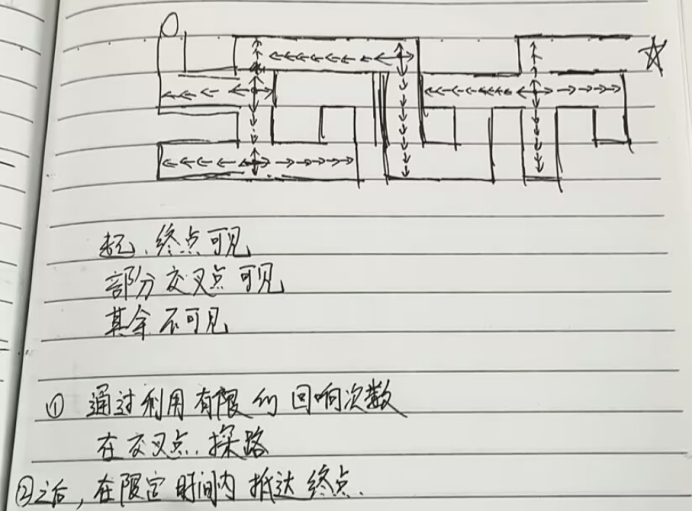 起、终点可见
部分交叉点可见
其余不可见
① 通过利用有限的回响次数
在交叉点探路
②之后,在限定时间内抵达终点.